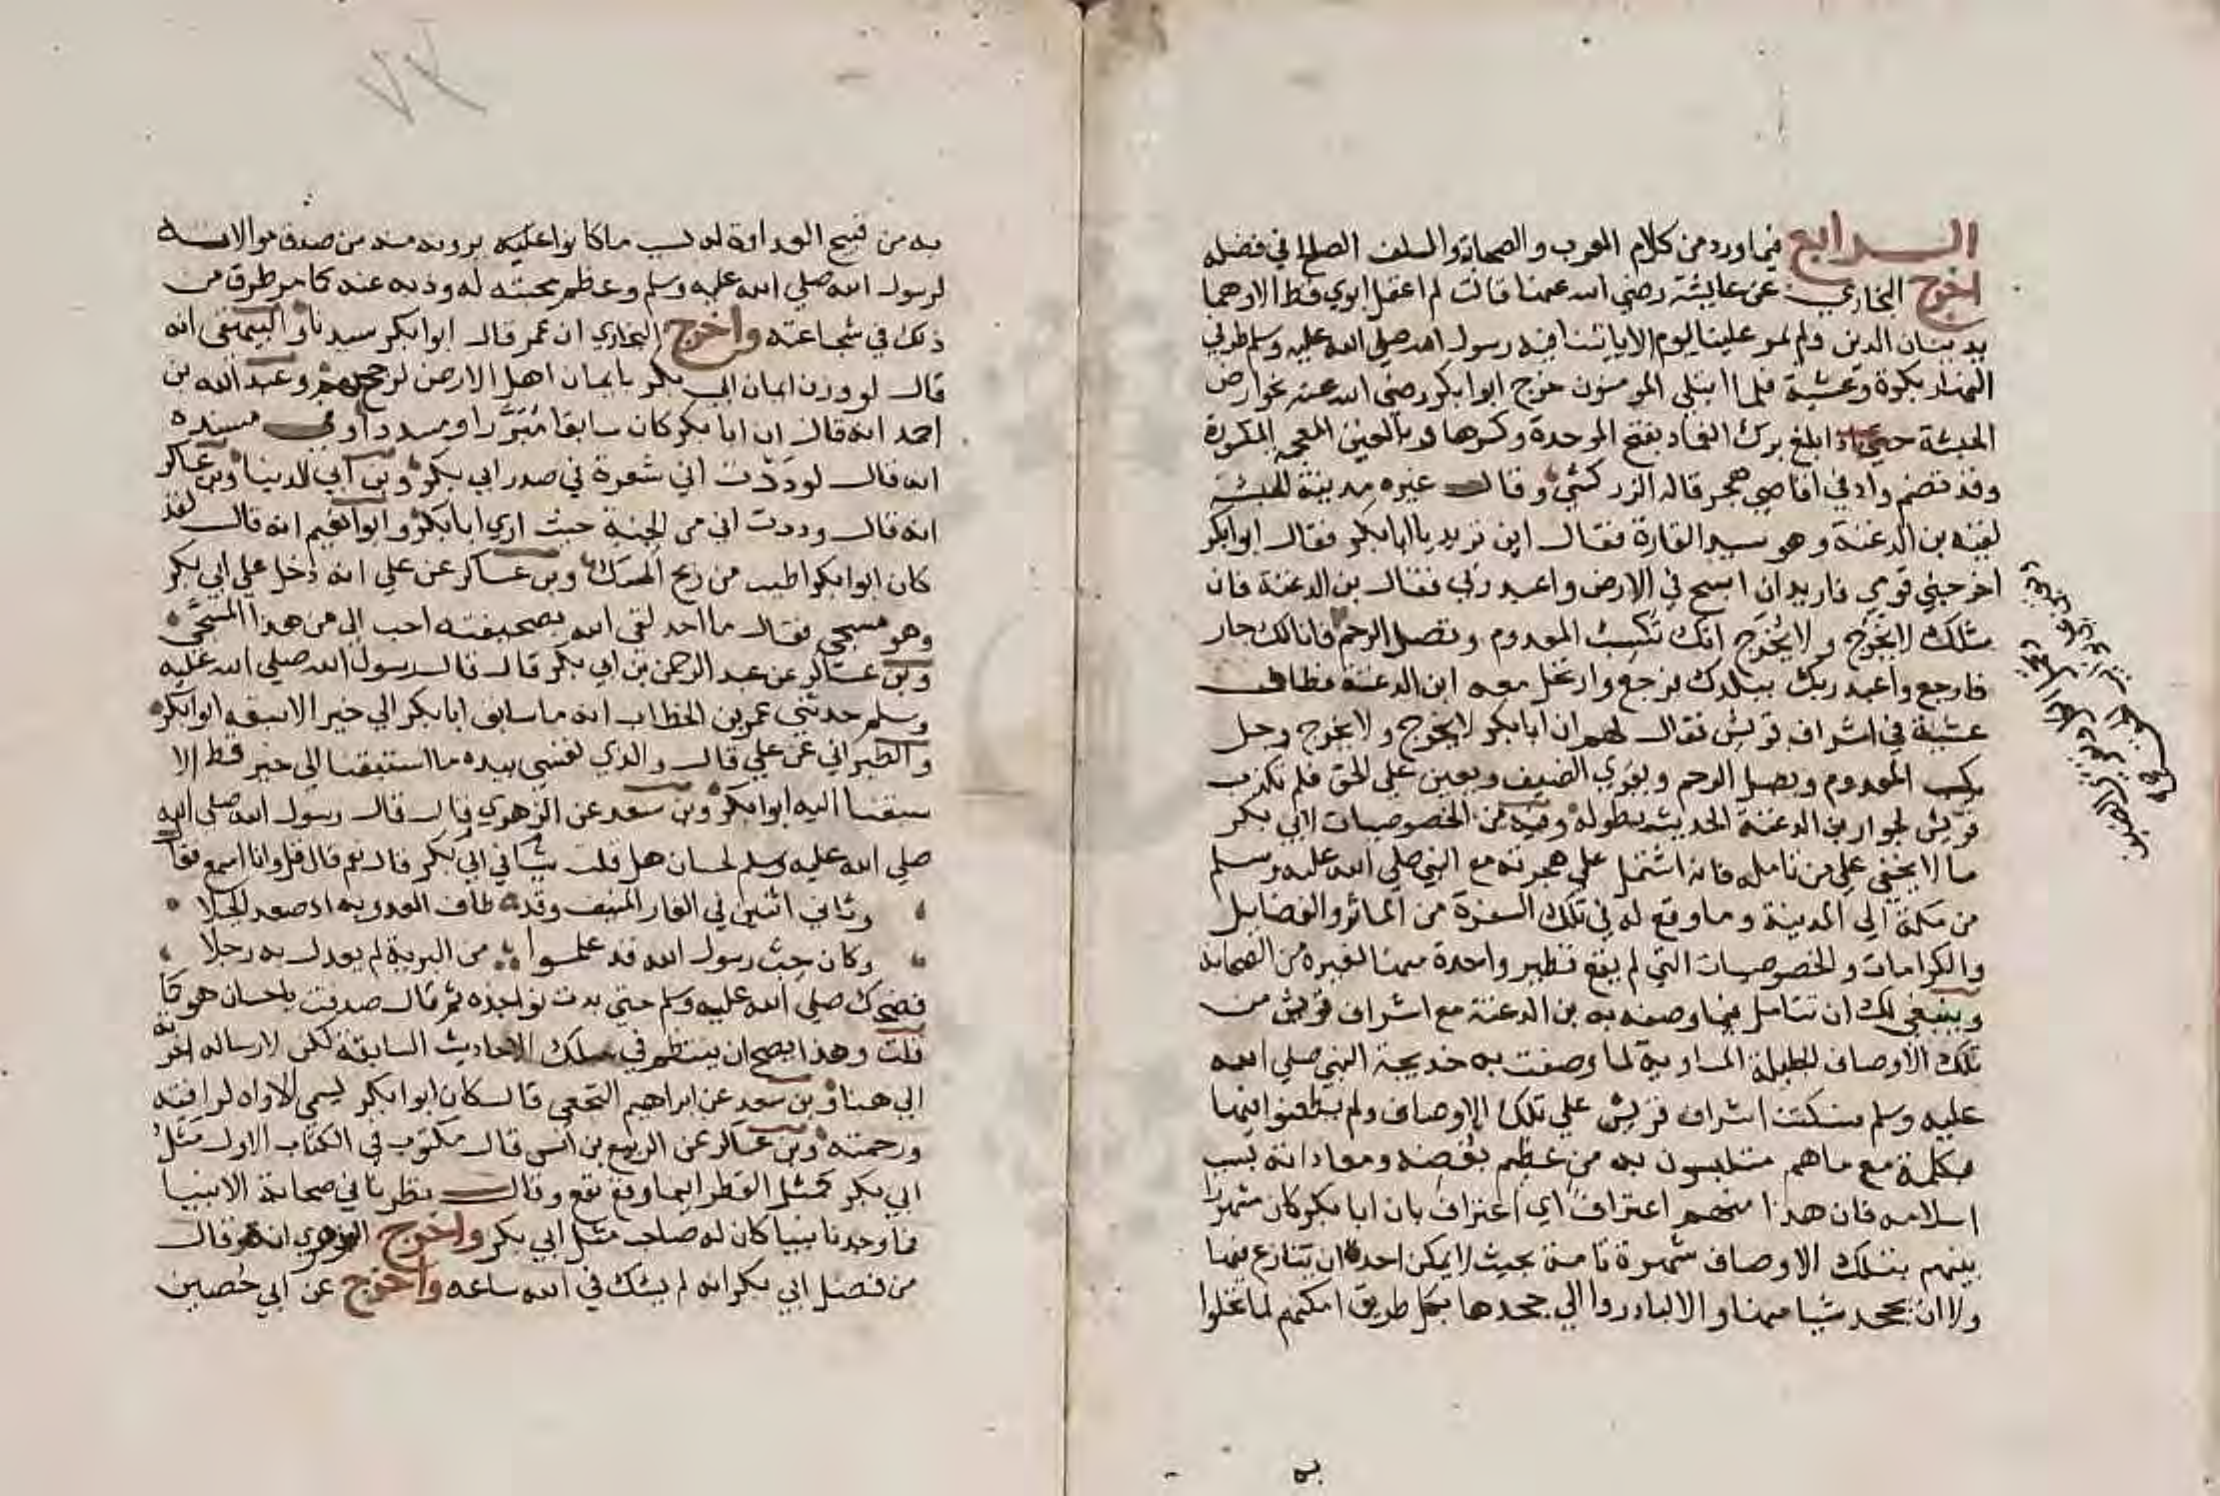 الرابع فيما ورد من كلام العرب والصحابة والسلف الصالح في فضله
اخرج البخاري عن عايشة رضي الله عنها قالت لم اعقل ابوي قط الا وهما
يدينان الدين ولم يمر علينا يوم الا ياتينا فيه رسول الله صلي الله عليه وسلم طرفي
النهار بكرة وعشية فلما ابتلي المومنون خرج ابو بكر رضي الله عنه نحو ارض
الحبشة حتي اذا بلغ برك الغماد بفتح الموحدة وكسرها وبالغين المعجمه المكسورة
وقد تضم واد في اقاصي هجر قاله الزركشي وقال غيره مدينة للحبشة
لقيه بن الدغنة وهو سيد القارة فقال اين تريد يا ابا بكر فقال ابو بكر
اخرجني قومي فاريد ان اسيح في الارض واعبد ربي فقال بن الدغنة فان
مثلك لا يَخرُج ولا يُخرَج انك تكسب المعدوم وتصل الرحم فانا لك جار
فارجع واعبد ربك ببلدك فرجع وارتحل معه ابن الدغنة فطاف
عشية في اشراف قريش فقال لهم ان ابا بكر لا يخرج ولا يخرج رجل
يكسب المعدوم ويصل الرحم ويقري الضيف ويعين علي الحق فلم تكذب
قريش لجوار بن الدغنة الحديث بطوله وفيه من الخصوصيات لابي بكر
ما لا يخفي علي من تامله فانه اشتمل علي هجرته مع النبي صلي الله عليه وسلم
من مكة الي المدينة وما وقع له في تلك السفرة من الماثر والفضايل
والكرامات والخصوصيات التي لم يقع نظير واحدة منها لغيره من الصحابة
وينبغي لك ان تتامل فيما وصفه به بن الدغنة مع اشراف قريش من
تلك الاوصاف الجليلة المساوية لما وصفت به خديجة النبي صلي الله
عليه وسلم فسكتت اشراف قريش علي تلك الاوصاف ولم يطعنوا فيها
بكلمة مع ما هم متلبسون به من عظيم بغضه ومعاداته بسبب
اسلامه فان هذا منهم اعتراف اي اعتراف بان ابا بكر كان مشهرا
بينهم بتلك الاوصاف شهرة تامة بحيث لا يمكن احد ان ينازع فيها
ولا ان يجحد شيا منها والا لبادروا الي جحدها بكل طريق امكنهم لما تحلوا
به
به من قبيح العداوة له بسبب ما كانوا عليه يرونه منه من صدق موالاته
لرسول الله صلي الله عليه وسلم وعظم محبته له وذبه عنه كما مر طرق من
ذلك في شجاعته واخرج البخاري ان عمر قال ابو بكر سيدنا والبيهقي انه
قال لو وزن ايمان ابي بكر بايمان اهل الارض لرجح بهم وعبد الله بن
احمد انه قال ان ابا بكر كان سابقا مُبَرَّزا ومسدد في مسنده
انه قال لوددت اني شعرة في صدر ابي بكر وبن ابي الدنيا وبن عساكر
انه قال وددت اني من الجنة حيث اري ابا بكر وابو نعيم انه قال لقد
كان ابو بكر اطيب من ريح المسك وبن عساكر عن علي انه دخل علي ابي بكر
وهو مسجي فقال ما احد لقي الله بصحيفته احب الي من هذا المسجي
وبن عساكر عن عبد الرحمن بن ابي بكر قال قال رسول الله صلي الله عليه
وسلم حدثني عمر بن الخطاب انه ما سابق ابا بكر الي خير الا سبقه ابو بكر
والطبراني عن علي قال والذي نفسي بيده ما استبقنا الي خير قط الا
سبقنا اليه ابو بكر وبن سعد عن الزهري قال قال رسول الله صلي الله
صلي الله عليه وسلم لحسان هل قلت شيا في ابي بكر قال نعم قال قل وانا اسمع فقا
وثاني اثنين في الغار المنيف وقد طاف العدو به اذ صعد الجبلا
وكان حب رسول الله قد علموا من البرية لم يعدل به رجلا
فضحك صلي الله عليه وسلم حتي بدت نواجذه ثم قال صدقت يا حسان هو كما
قلت وهذا يصح ان ينتظم في سلك الاحاديث السابقة لكن لارساله اخرته
الي هنا وبن سعد عن ابراهيم النخعي قال كان ابو بكر يسمي الاواه لرافته
ورحمته وبن عساكر عن الربيع بن انس قال مكتوب في الكتاب الاول مثل
ابي بكر كمثل القطر اينما وقع نفع وقال نظرنا في صحابة الانبيا
فما وجدنا نبيا كان له صاحب مثل ابي بكر واخرج الزهري انه قال
من فضل ابي بكر انه لم يشك في الله ساعه واخرج عن ابي حصين